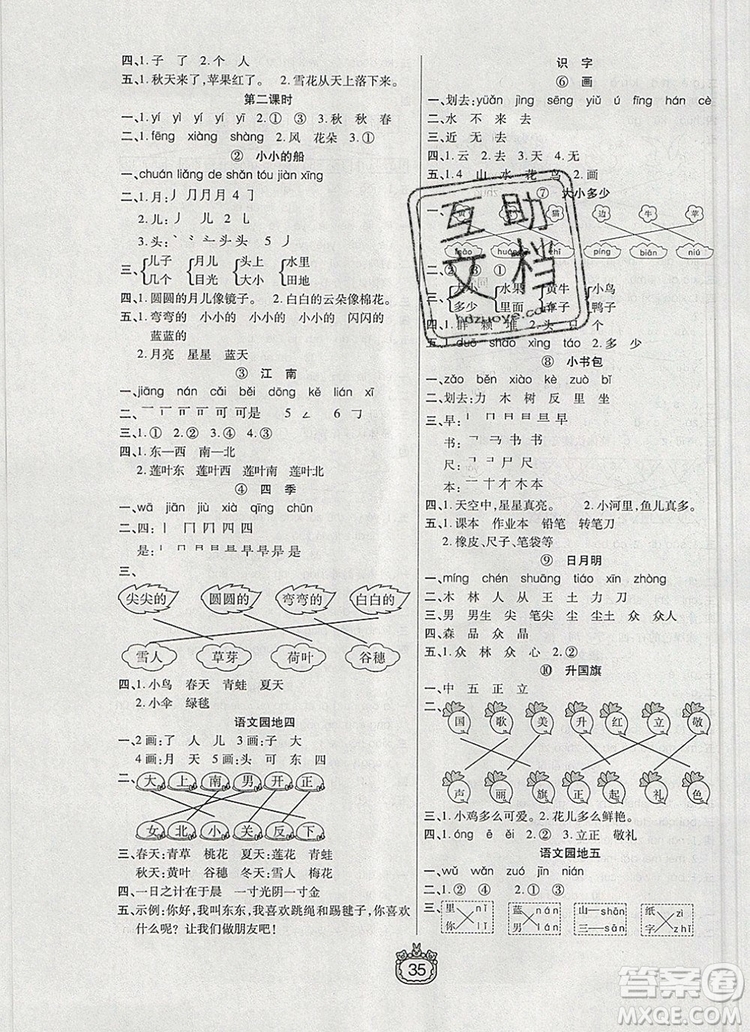 四、1. 子 了 2. 个 人
五、1. 秋天来了,苹果红了。 2. 雪花从天上落下来。
第二课时
一、1. yí yì yì yí 2. ① ③ 3. 秋 秋 春
二、1. fēng xiàng shàng 2. 风 花朵 3. ②
② 小小的船
一、chuán liǎng de shǎn tóu jiàn xīng
二、1. 月:丿 ⺆ 月 月 4 ㇕
2. 儿:丿 儿 2
3. 头:
三、 儿子 月儿 头上 里面
几个 目光 大小 田地
四、1. 圆圆的月儿像镜子。 2. 白白的云朵像棉花。
五、1. 弯弯的 小小的 小小的 闪闪的
蓝蓝的
2. 月亮 星星 蓝天
③ 江 南
一、jiāng nán cǎi běi dōng kě lián xī
三、1. ① 2. ② 3. ① 4. ①
四、1. 东—西 南—北
2. 莲叶东 莲叶西 莲叶南 莲叶北
④ 四 季
一、wā jiān jiù xià qīng chūn
三、
尖尖的 圆圆的 弯弯的 白白的
雪人 草芽 荷叶 谷穗
四、1. 小鸟 春天 青蛙 夏天
2. 小伞 绿毯
语文园地四
一、2画:了 人 儿 3画:子 大
4画:月 天 5画:头 可 东 四
二、大 上 南 男 开 正
女 北 小 关 反 下
三、春天:青草 桃花 夏天:莲花 青蛙
秋天:黄叶 谷穗 冬天:雪人 梅花
四、一日之计在于晨 一寸光阴一寸金
五、示例:你好,我叫东东,我喜欢跳绳和踢毽子,你喜欢
什么呢?让我们做朋友吧!
识 字
⑥ 画
一、划去:yuǎn jìng sēng yiǔ ú fíng hán cè
二、水 不 来 去
三、近 无 去
四、1. 云 2. 去 3. 来 4. 是
五、1. 4 山 水 花 鸟 2. 画
⑦ 大小多少
一、 猫 边 牛 苹
píng biān niú
二、① ② ③
三、 大小 水果 黄牛 小鸟
多少 里面 鸭子
四、1. 群 颗 堆 2. 头 只 个
五、1. duō shǎo xiǎo dà 2. 多 少
⑧ 小书包
一、zǎo běn xiào kè zuò bǐ
二、划去:力 木 树 反 里 坐
三、早:
书:
尺:
本:一 十 才 木 本
四、1. 天空中,星星真亮。 2. 小河里,鱼儿真多。
五、1. 课本 作业本 铅笔 转笔刀
2. 橡皮、尺子、笔袋等
⑨ 日月明
一、míng chén shuāng tiáo xīn zhòng
二、木 林 人 从 王 土 力 刀
三、男 男生 尖 笔尖 尘 尘土 众 众人
四、森 品 众 晶
五、1. 众 林 众 2. 尘 心
⑩ 升国旗
一、中 五 正 立
二、国 歌 美 升 红 立 敬
声 丽 旗 正 起 礼 色
三、1. 小鸡多么可爱。2. 花儿多么鲜艳。
四、1. óng ě ěi 2. ② 3. 立正 敬礼
语文园地五
一、wǔ wǎn zuó jīn nián
二、1. ② ④ 2. ① ③
三、里 nǐ 蓝 nán 山 shān 纸 zì
你 lǐ 男 lán 三 sān 字 zhǐ
互助文档
hdzuoye.com
35
答案圈
MXQE.COM